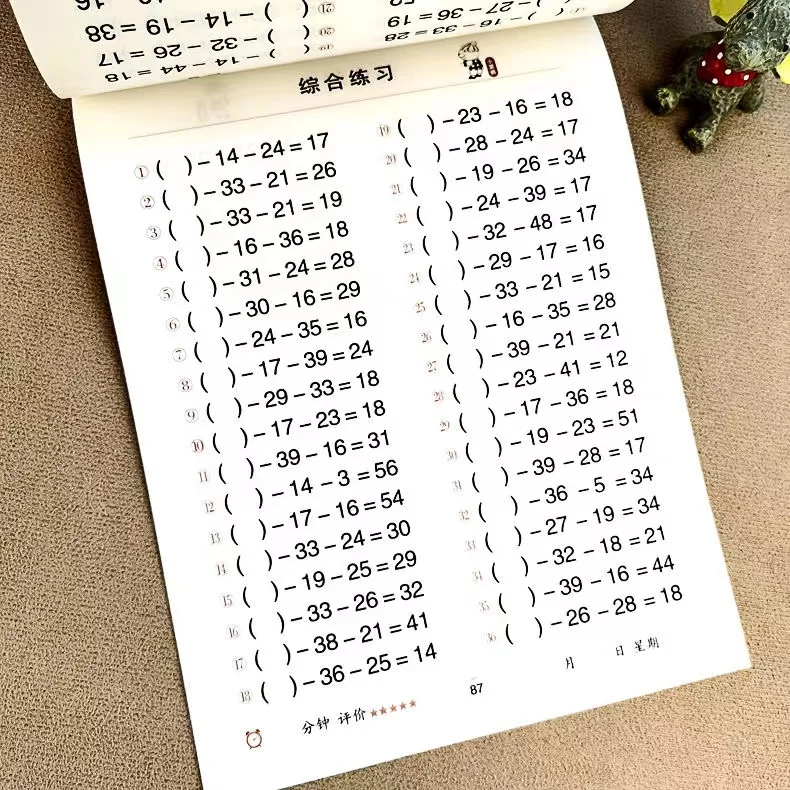 综合练习
① ( ) − 14 − 24 = 17
② ( ) − 33 − 21 = 26
③ ( ) − 33 − 21 = 19
④ ( ) − 16 − 36 = 18
⑤ ( ) − 31 − 24 = 28
⑥ ( ) − 30 − 16 = 29
⑦ ( ) − 24 − 35 = 16
⑧ ( ) − 17 − 39 = 24
⑨ ( ) − 29 − 33 = 18
10 ( ) − 17 − 23 = 18
11 ( ) − 39 − 16 = 31
12 ( ) − 14 − 3 = 56
13 ( ) − 17 − 16 = 54
14 ( ) − 33 − 24 = 30
15 ( ) − 19 − 25 = 29
16 ( ) − 33 − 26 = 32
17 ( ) − 38 − 21 = 41
18 ( ) − 36 − 25 = 14
19 ( ) − 23 − 16 = 18
20 ( ) − 28 − 24 = 17
21 ( ) − 19 − 26 = 34
22 ( ) − 24 − 39 = 17
23 ( ) − 32 − 48 = 17
24 ( ) − 29 − 17 = 16
25 ( ) − 33 − 21 = 15
26 ( ) − 16 − 35 = 28
27 ( ) − 39 − 21 = 21
28 ( ) − 23 − 41 = 12
29 ( ) − 17 − 36 = 18
30 ( ) − 19 − 23 = 51
31 ( ) − 39 − 28 = 17
32 ( ) − 36 − 5 = 34
33 ( ) − 27 − 19 = 34
34 ( ) − 32 − 18 = 21
35 ( ) − 39 − 16 = 44
36 ( ) − 26 − 28 = 18
分钟 评价★★★★★
87
月 日 星期
( ) − 14 − 19 = 38
( ) − 32 − 26 = 17
( ) − 14 − 44 = 18
− 27 − 36 = 19
− 16 − 33 = 28